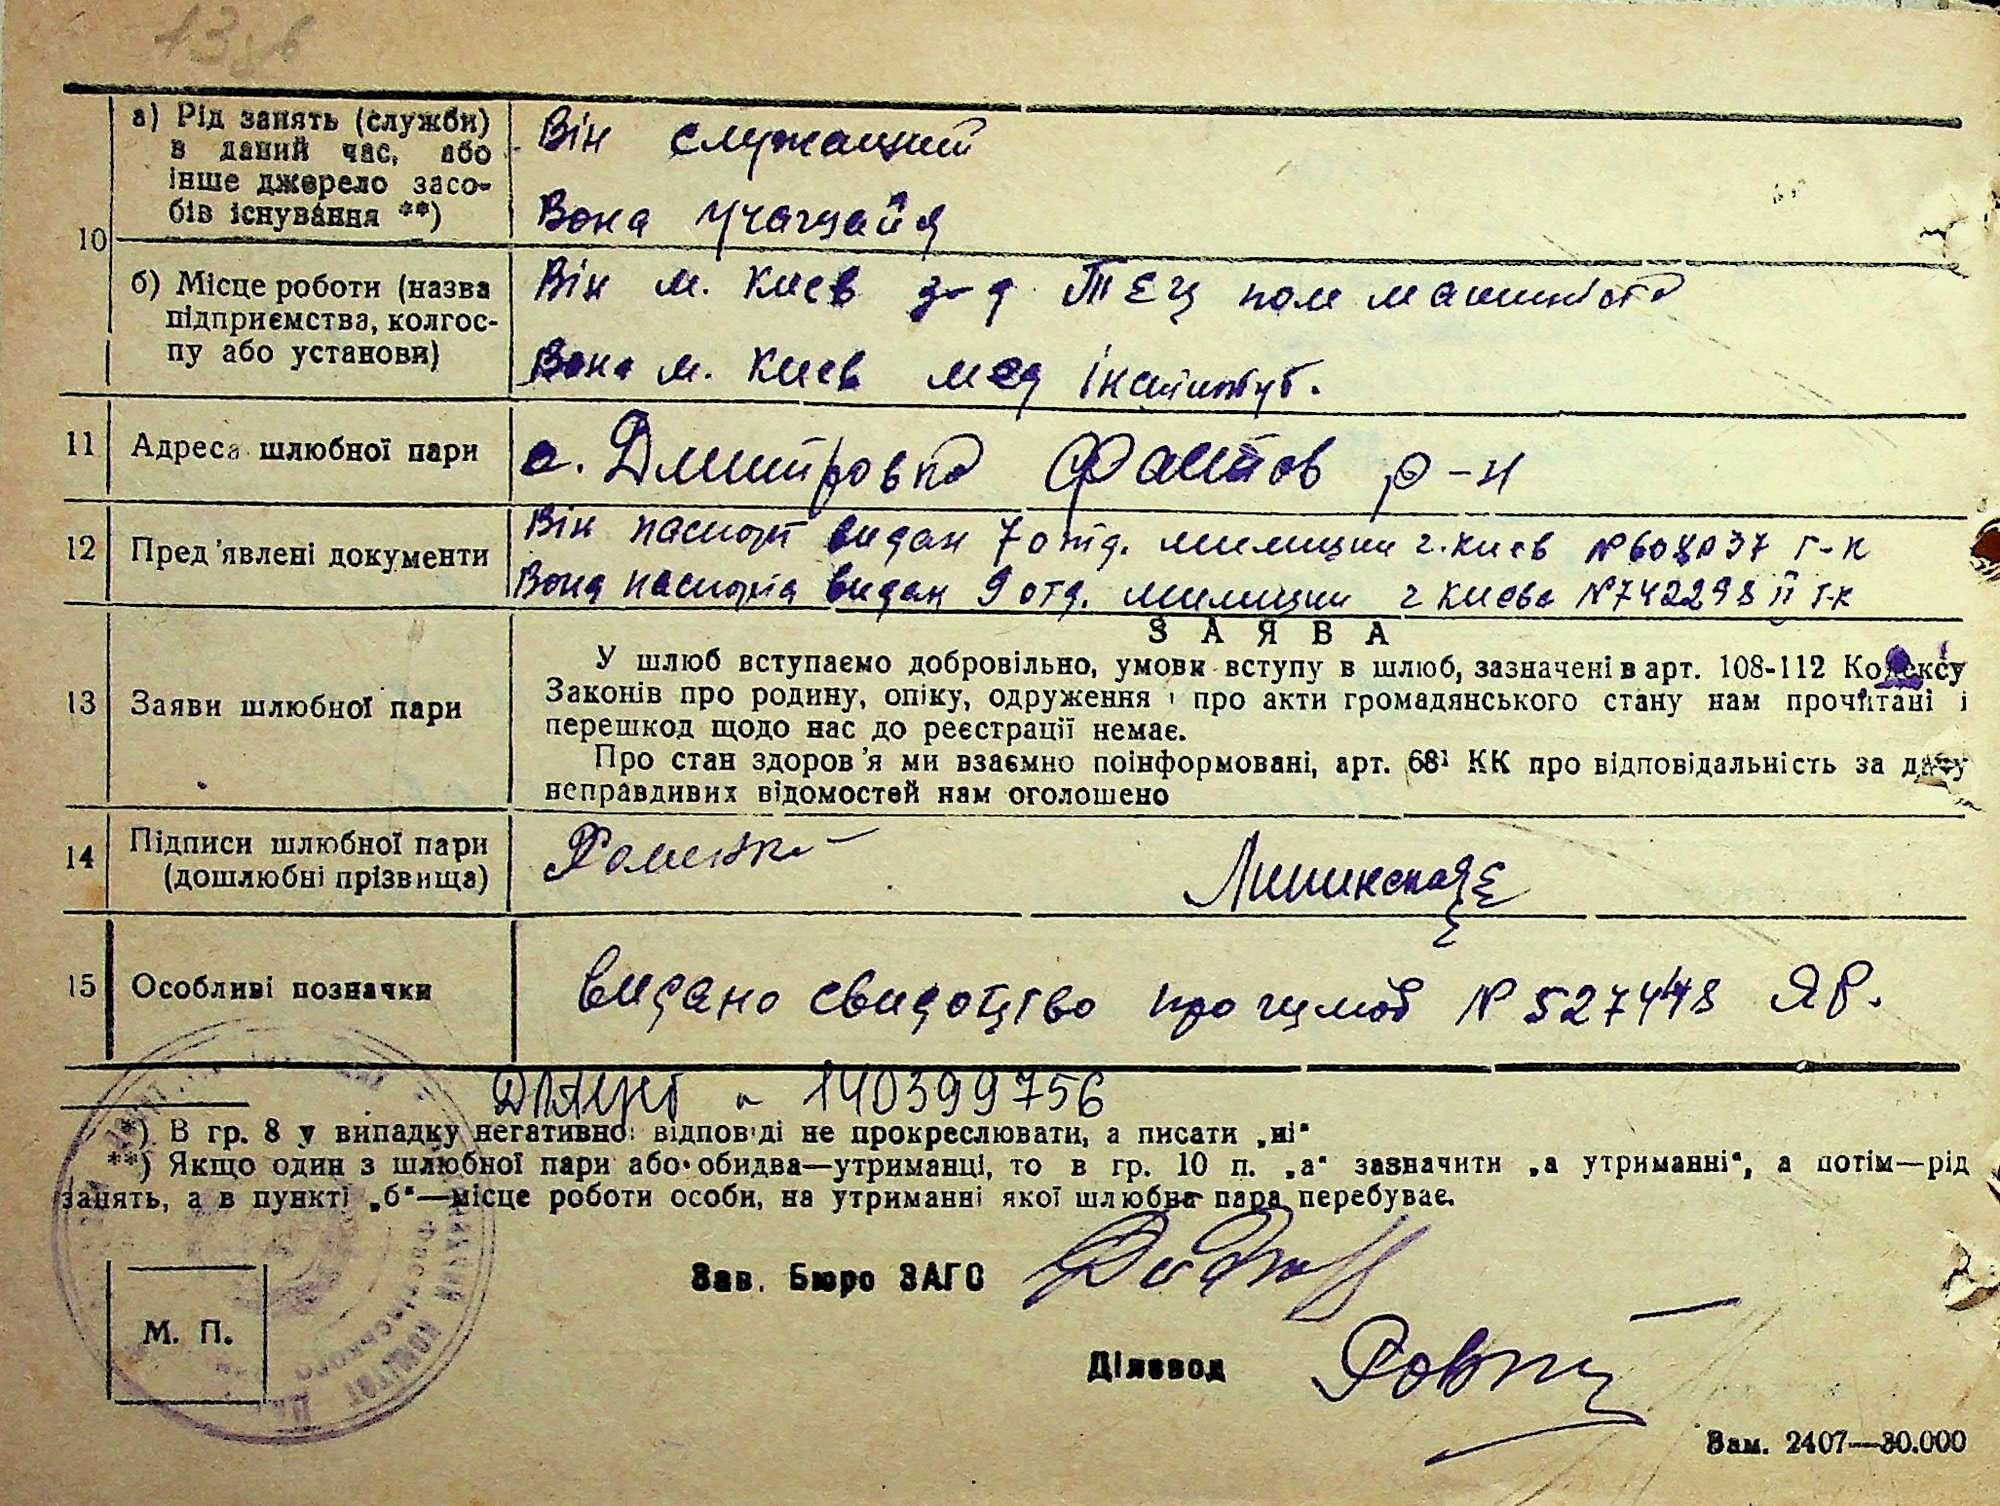 10
а) Рід занять (служби)
в даний час, або
інше джерело засо-
бів існування **)
Він служащий
Вона учащайя
б) Місце роботи (назва
підприємства, колгос-
пу або установи)
Він м. Киев з-д ТЕЦ пом машиніста
Вона м. Киев мед інститут.
11 Адреса шлюбної пари
с. Дмитровка Фастов р-н
12 Пред'явлені документи
Він паспорт видан 7 отд. милиции г. Киев
Вона паспорта видан 9 отд. милиции г Києва № 742298 II г-к
13 Заяви шлюбної пари
ЗАЯВА
У шлюб вступаємо добровільно, умови вступу в шлюб, зазначені в арт. 108-112 Кодексу
Законів про родину, опіку, одруження і про акти громадянського стану нам прочитані і
перешкод щодо нас до реєстрації немає.
Про стан здоров'я ми взаємно поінформовані, арт. 68¹ КК про відповідальність за дачу
неправдивих відомостей нам оголошено
14 Підписи шлюбної пари
(дошлюбні прізвища)
15 Особливі позначки
видано свидоцтво про шлюб № 527448 ЯВ.
140399756
*) В гр. 8 у випадку негативної відповіді не прокреслювати, а писати „ні"
**) Якщо один з шлюбної пари або обидва—утриманці, то в гр. 10 п. „а" зазначити „а утриманні", а потім—рід
занять, а в пункті „б"—місце роботи особи, на утриманні якої шлюбна пара перебуває.
Зав. Бюро ЗАГС
М. П.
Діловод
Зам. 2407—30.000